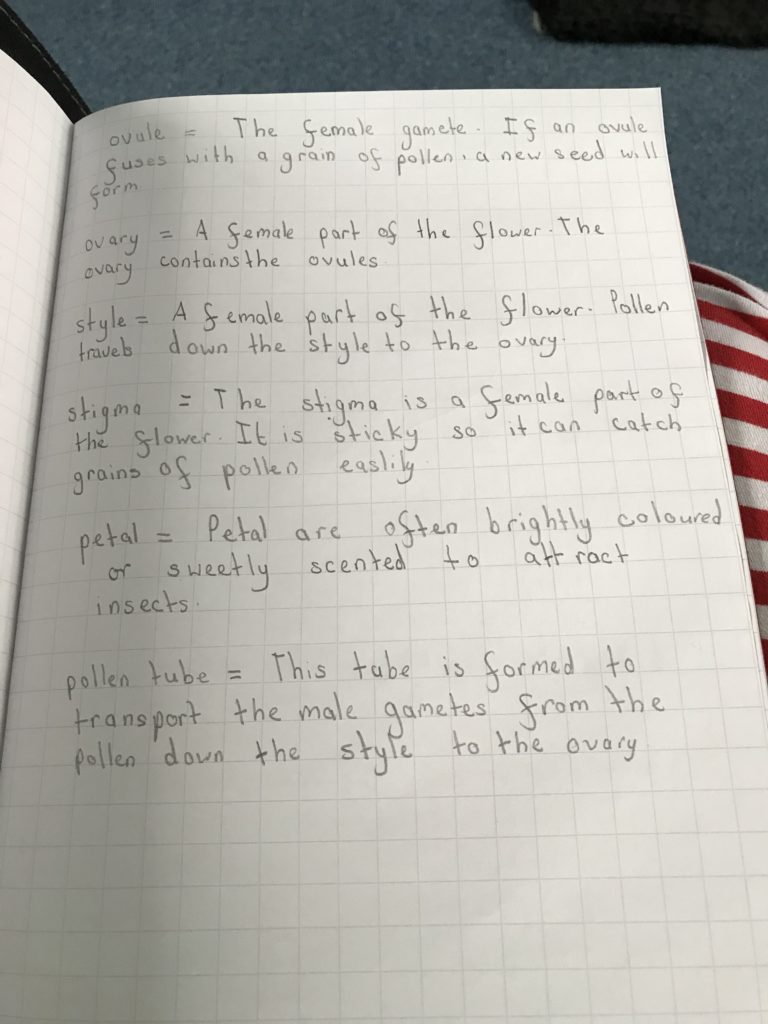 ovule = The female gamete. If an ovule
fuses with a grain of pollen, a new seed will
form
ovary = A female part of the flower. The
ovary contains the ovules
style = A female part of the flower. Pollen
travels down the style to the ovary.
stigma = The stigma is a female part of
the flower. It is sticky so it can catch
grains of pollen easlily
petal = Petal are often brightly coloured
or sweetly scented to attract
insects.
pollen tube = This tube is formed to
transport the male gametes from the
pollen down the style to the ovary